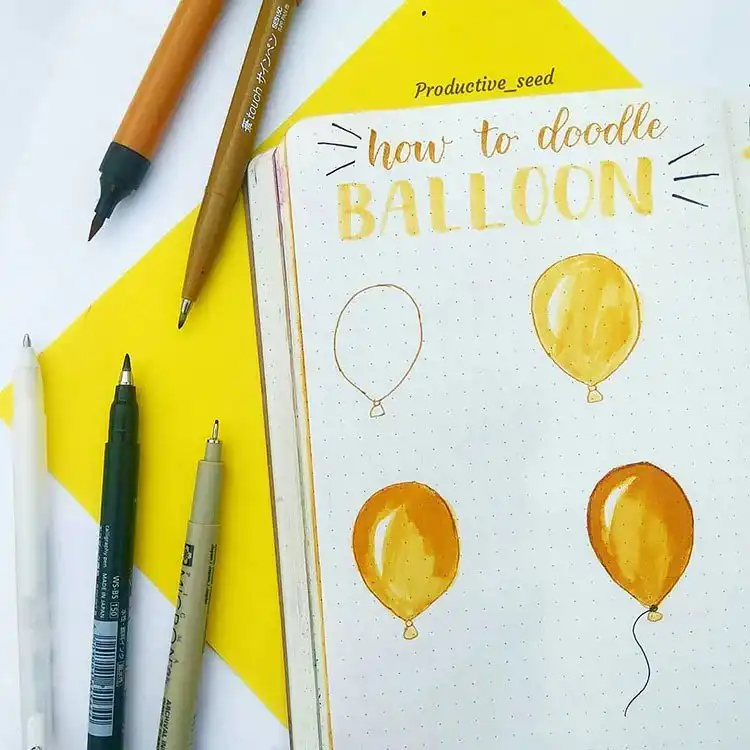 Productive_seed
how to doodle
BALLOON
touch サインペン
WS-BS 150
MADE IN JAPAN